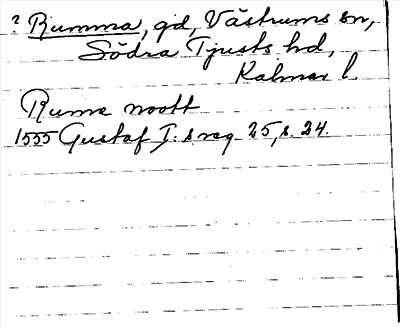 ? Rumma, gd, Västrums sn,
Södra Tjusts hd,
Kalmar l.
Rume noott
1555 Gustaf I:s reg 25, s. 24.